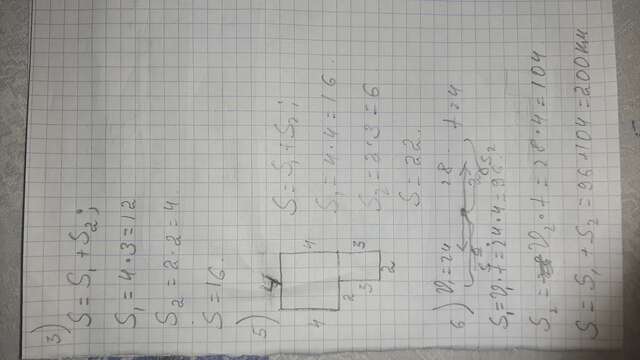 3)
S = S₁ + S₂;
S₁ = 4·3 = 12
S₂ = 2·2 = 4.
S = 16.
5)
4
4
4
3
2
3
2
S = S₁ + S₂;
S₁ = 4·4 = 16.
S₂ = 2·3 = 6
S = 22.
6) V₁ = 24 28 t = 4
S₂
S₁ = V₁·t = 24·4 = 96.
S₂ = V₂·t = 28·4 = 104
S = S₁ + S₂ = 96 + 104 = 200км